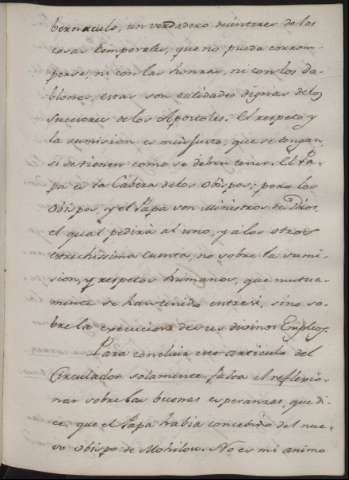 bernaculo, un verdadero desinteres de las
cosas temporales, que no pueda corrom-
perse, ni con las honras, ni con los do-
blones, estas son calidades dignas de los
succesores de los Apostoles. El respeto y
la sumision es mui justo, que se tengan,
si se tienen como se deben tener. El Pa-
pa es la Cabeza de los Obispos; pero los
Obispos, y el Papa son Ministros de Dios,
el qual pedirá al uno, y a los otros
estrechissima cuenta, no sobre la sumi-
sion, y respetos humanos, que mutua-
mente se han tenido entre si, sino so-
bre la execucion de sus divinos Empleos.
Para concluir este articulo del
Circulador solamente falta el reflexio-
nar sobre las buenas esperanzas, que di-
ce, que el Papa habia concebido del nue-
vo Obispo de Mohilow. No es mi animo